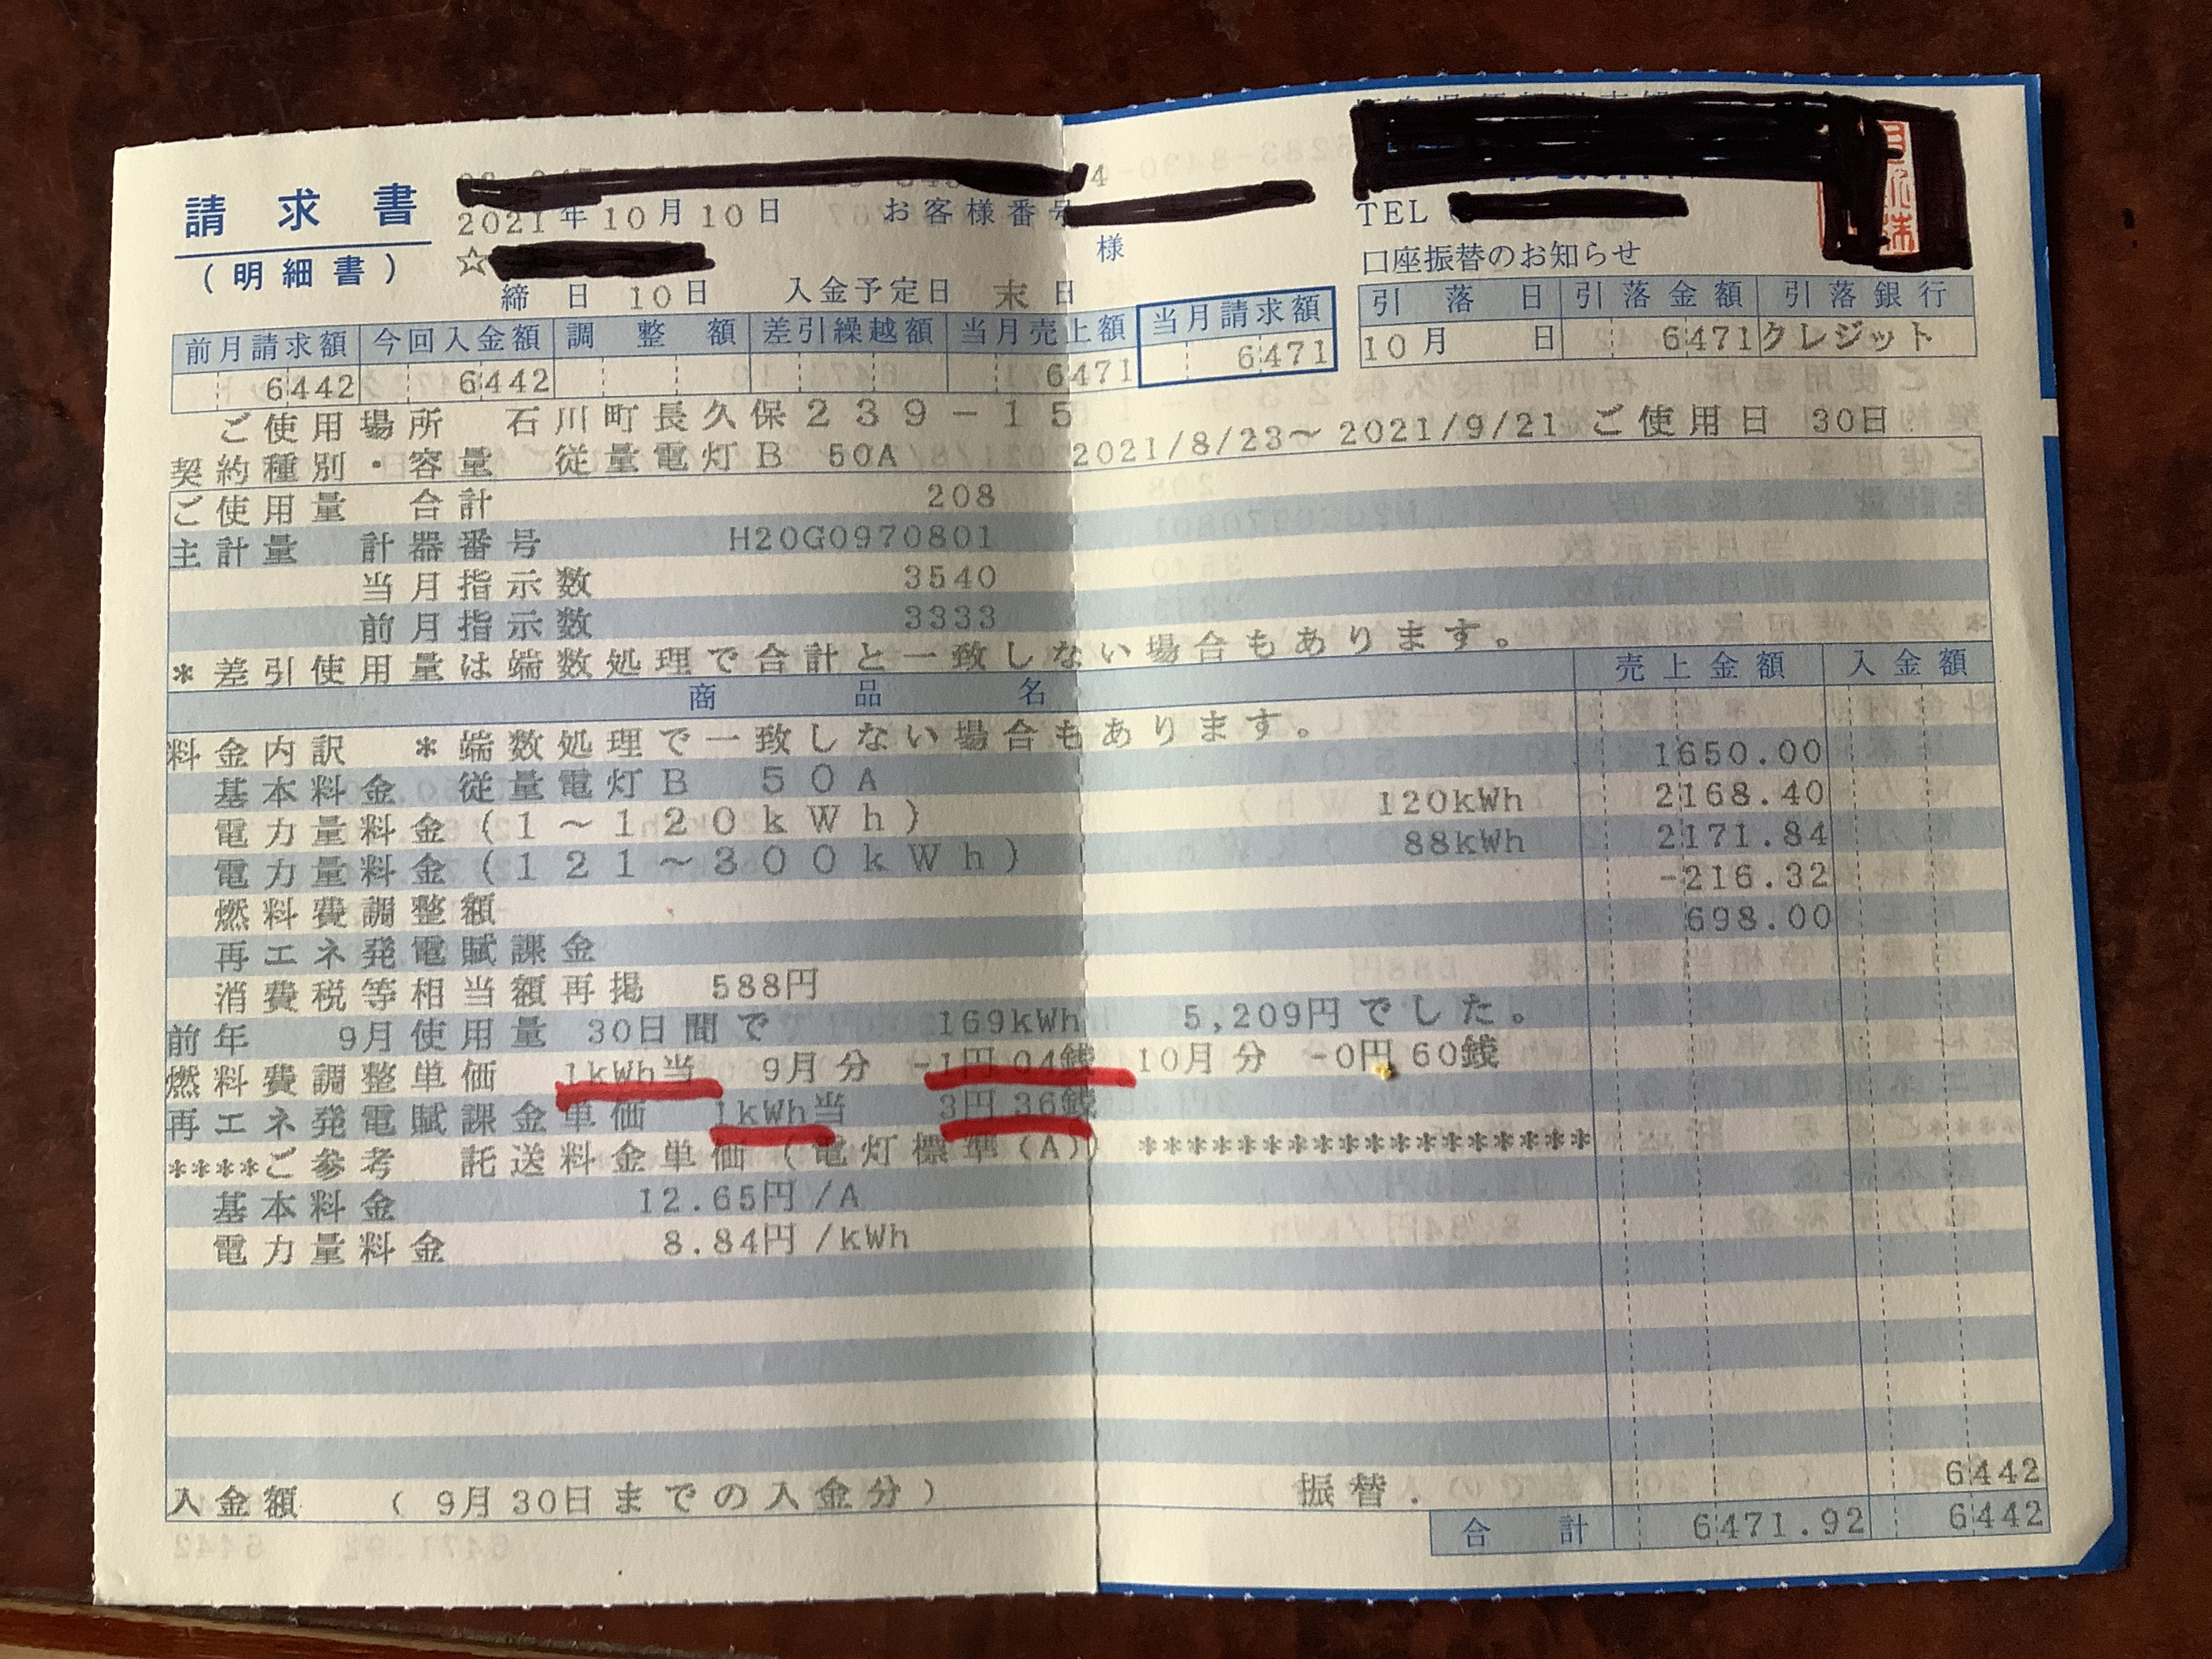 請求書
(明細書)
2021年10月10日 お客様番号
☆ 様
締日 10日 入金予定日 末日
TEL
口座振替のお知らせ
引落日 引落金額 引落銀行
10月 日 6471 クレジット
前月請求額 今回入金額 調整額 差引繰越額 当月売上額 当月請求額
6442 6442 6471 6471
ご使用場所 石川町長久保239-15
契約種別・容量 従量電灯B 50A 2021/8/23~2021/9/21 ご使用日 30日
ご使用量 合計 208
主計量 計器番号 H20G0970801
当月指示数 3540
前月指示数 3333
*差引使用量は端数処理で合計と一致しない場合もあります。
商品名 売上金額 入金額
料金内訳 *端数処理で一致しない場合もあります。
基本料金 従量電灯B 50A 1650.00
電力量料金(1~120kWh) 120kWh 2168.40
電力量料金(121~300kWh) 88kWh 2171.84
燃料費調整額 -216.32
再エネ発電賦課金 698.00
消費税等相当額再掲 588円
前年 9月使用量 30日間で 169kWh 5,209円でした。
燃料費調整単価 1kWh当 9月分 -1円04銭 10月分 -0円60銭
再エネ発電賦課金単価 1kWh当 3円36銭
****ご参考 託送料金単価(電灯標準(A)) *******************
基本料金 12.65円/A
電力量料金 8.84円/kWh
入金額 (9月30日までの入金分) 振替. 6442
合計 6471.92 6442